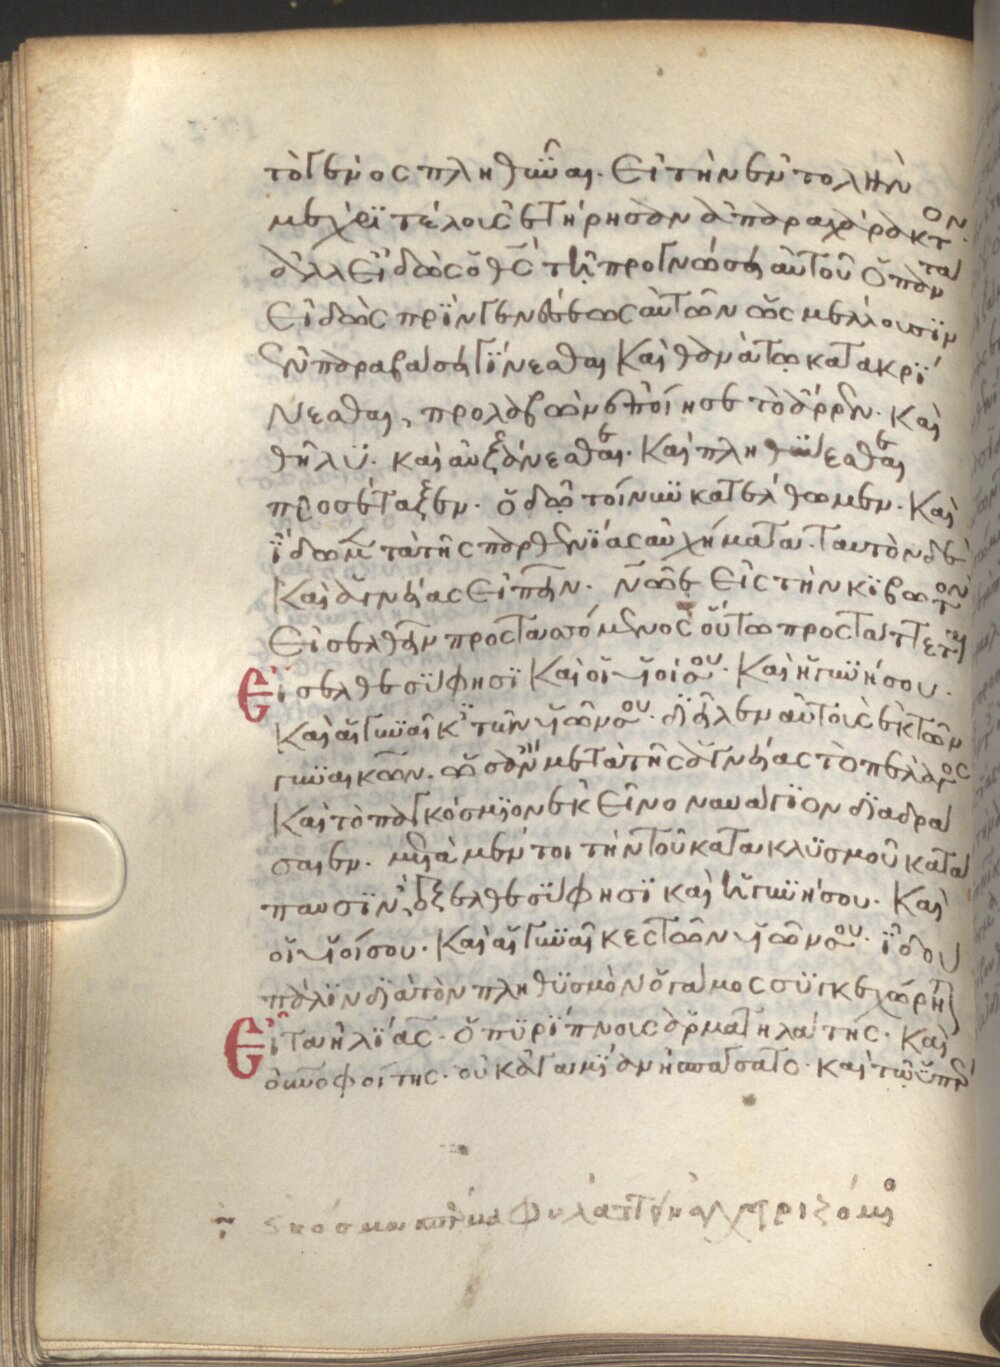 τὸ γένος πληθῦναι. εἰ τὴν ἐντολὴν
μέχρι τέλους ἐτήρησαν ἀπαραχάρακτον.
ἀλλ εἰδὼς ὁ θς τῇ προγνώσει αὐτοῦ ὁ πάντα
εἰδὼς πρὶν γενέσεως αὐτῶν ὡς μέλλουσιν
ἐν παραβάσει γίνεσθαι καὶ θανάτω κατακρί
νεσθαι, προλαβὼν ἐποίησε τὸ ἄρρεν. καὶ
θῆλυ. καὶ αὐξάνεσθαι. καὶ πληθύνεσθαι
προσέταξεν. ὁδῶ τοίνυν κατέλθωμεν. καὶ
ἴδωμεν τὰ τῆς παρθενίας αὐχήματα. ταυτὸν δὲ
καὶ ἁγνείας εἰπεῖν. νῶε εἰς τὴν κιβωτὸν
εἰσελθεῖν προσταττόμενος οὕτω προστάττεται
εἴσελθε σύ φησι καὶ οἱ υἱοί σου. καὶ ἡ γυνή σου.
καὶ αἱ γυναῖκες τῶν υἱῶν σου. διεῖλεν αὐτοὺς ἐκ τῶν
γυναικῶν. ὡς ἂν μετὰ τῆς ἁγνείας τὸ πέλαγος
καὶ τὸ παγκόσμιον ἐκεῖνο ναυάγιον διαδρά
σαιεν. μετὰ μέντοι τὴν τοῦ κατακλυσμοῦ κατά
παυσιν, ἔξελθε σύ φησι καὶ ἡ γυνή σου. καὶ
οἱ υἱοί σου. καὶ αἱ γυναῖκες τῶν υἱῶν σου. ἰδοὺ
πάλιν διὰ τὸν πληθυσμὸν ὁ γάμος συγκεχώρηται
εἶτα ἠλίας. ὁ πυρίπνους ἁρματηλάτης. καὶ
οὐνοφοίτης. οὐκ ἀγαμίαν ἠσπάσατο. καὶ τῶ ὑπὲρ